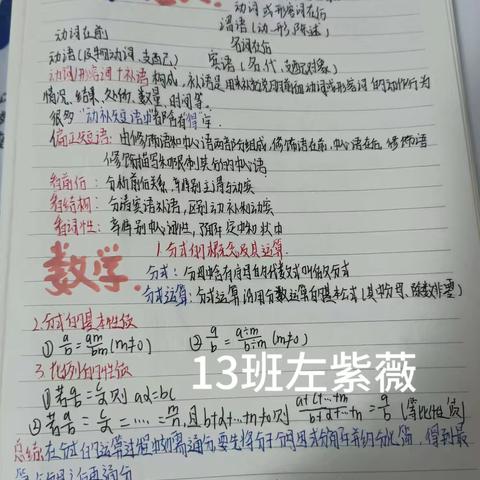 动词或形容词在后
动词在前
谓语(动、形、陈述)
名词在后
动语(及物动词、支配)
宾语(名、代、支配对象)
动词/形容词+补语构成,补语是用来补充说明前面动词或形容词的动作行为
情况、结果、处所、数量、时间等。
很多"动补短语中都含有"得"字。
偏正短语:由修饰语和中心语两部分组成,修饰语在前,中心语在后,修饰语
修饰描写或限制其后的中心语
看前后:分析前后关系,辨别主谓与动宾
看结构:分清宾语补语,区别动补和动宾
看词性:辨别中心词性,
数学
1.分式的概念及其运算
分式:分母中含有字母的代数式叫做分式
分式运算:分式运算沿用分数运算的基本公式(其中分母、除数非零)
2.分式的基本性质
① a/b = am/bm (m≠0)
② a/b = a÷m/b÷m (m≠0)
3.比例的性质
①若 a/b = c/d 则 ad=bc
②若 a/b = c/d = …… = m/n,且b+d+…+n≠0则 a+c+…+m/b+d+…+n = a/b (等比性质)
总结:在分式的运算过程中如需通分要先将分子分母因式分解并约分化简,得到最
13班左紫薇